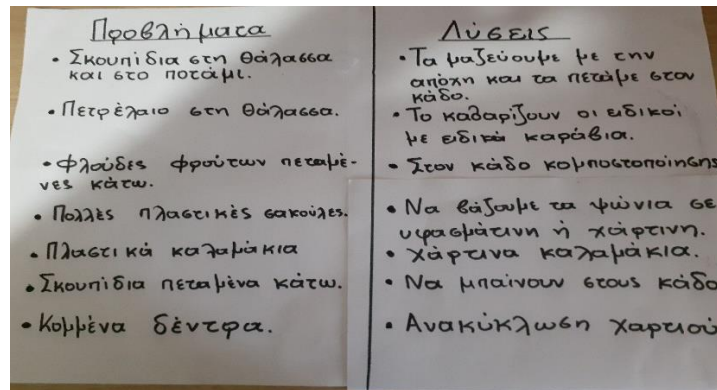 Προβλήματα
• Σκουπίδια στη θάλασσα
και στο ποτάμι.
• Πετρέλαιο στη θάλασσα.
• Φλούδες φρούτων πεταμέ-
νες κάτω.
• Πολλές πλαστικές σακούλες.
• Πλαστικά καλαμάκια
• Σκουπίδια πεταμένα κάτω.
• Κομμένα δέντρα.
Λύσεις
• Τα μαζεύουμε με την
απόχη και τα πετάμε στον
κάδο.
• Το καθαρίζουν οι ειδικοί
με ειδικά καράβια.
• Στον κάδο κομποστοποίησης
• Να βάζουμε τα ψώνια σε
υφασμάτινη ή χάρτινη.
• Χάρτινα καλαμάκια.
• Να μπαίνουν στους κάδο
• Ανακύκλωση χαρτιού